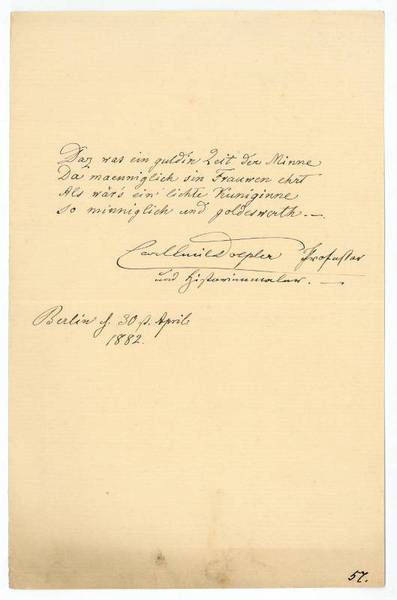 Daz was ein guldin Zeit der Minne
Da maenniglich sin Frauwen ehrt
Als wär's ein' lichte Kuniginne
So minniglich und goldeswerth. —
Carl Emil Doepler Professor
und Historienmaler. —
Berlin d. 30 st. April
1882.
57.